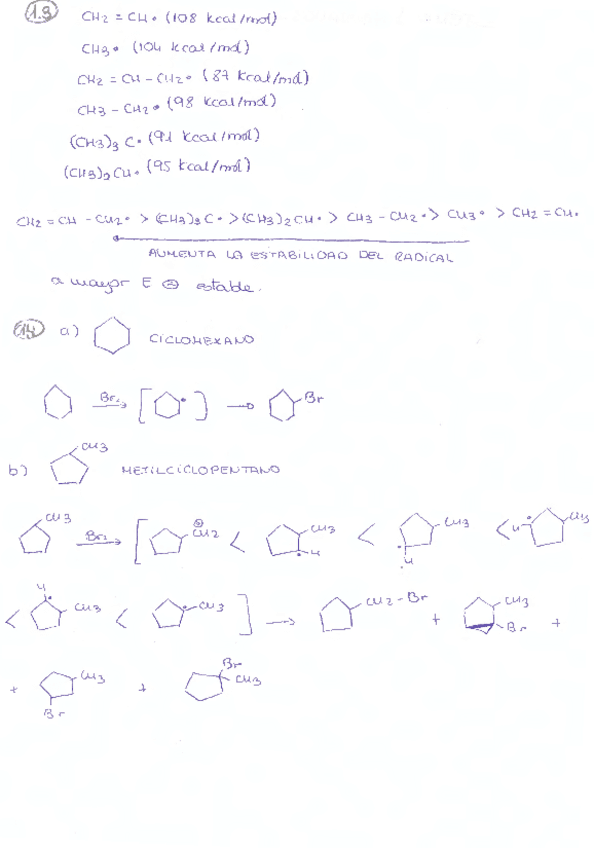 1.3
CH2 = CH• (108 kcal/mol)
CH3• (104 kcal/mol)
CH2 = CH - CH2• (87 kcal/mol)
CH3 - CH2• (98 kcal/mol)
(CH3)3 C• (91 kcal/mol)
(CH3)2 CH• (95 kcal/mol)
CH2 = CH - CH2• > (CH3)3 C• > (CH3)2 CH• > CH3 - CH2• > CH3• > CH2 = CH•
AUMENTA LA ESTABILIDAD DEL RADICAL
a mayor E ⊖ estable.
1.4 a) CICLOHEXANO
Br2 [ • ] → Br
CH3
b) METILCICLOPENTANO
CH3 Br2 [ CH2 < CH3 H < CH3 H < H CH3
< H CH3 < CH3 ] → CH2-Br + CH3 Br +
+ CH3 Br + Br CH3